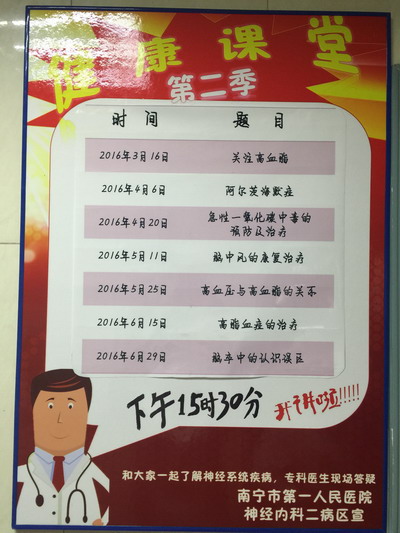 健康课堂
第二季
时间 题目
2016年3月16日 关注高血脂
2016年4月6日 阿尔茨海默症
2016年4月20日 急性一氧化碳中毒的
预防及治疗
2016年5月11日 脑中风的康复治疗
2016年5月25日 高血压与高血脂的关系
2016年6月15日 高脂血症的治疗
2016年6月29日 脑卒中的认识误区
下午15时30分 开讲啦!!!!!
和大家一起了解神经系统疾病，专科医生现场答疑
南宁市第一人民医院
神经内科二病区宣